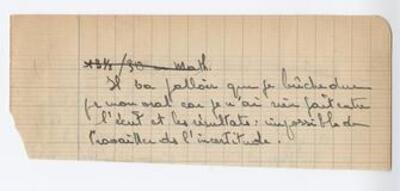 /30 — Math.
Il va falloir que je bûche dur
pr mon oral car je n'ai rien fait entre
l'écrit et les résultats : impossible de
travailler ds l'incertitude.